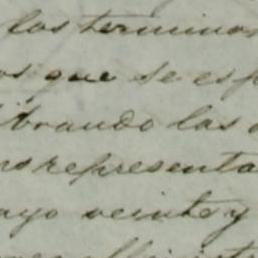 los terminos
os que se es
brando las
representa
ayo veinte y